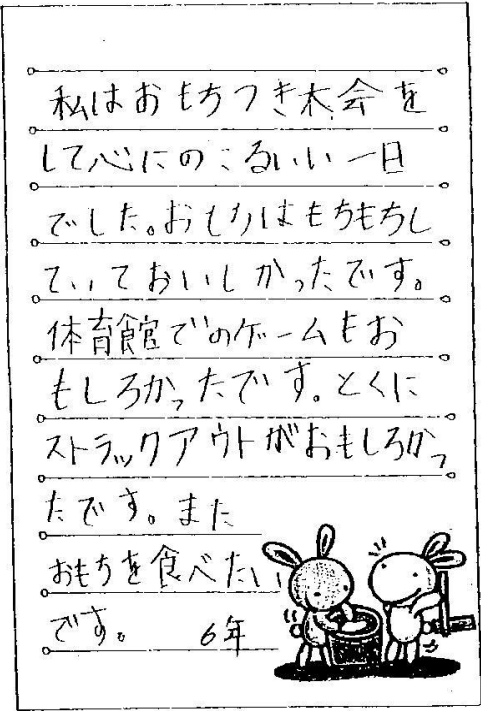 私はおもちつき大会を
して心にのこるいい一日
でした。おもちはもちもちし
ていておいしかったです。
体育館でのゲームもお
もしろかったです。とくに
ストラックアウトがおもしろかっ
たです。また
おもちを食べたい
です。 6年